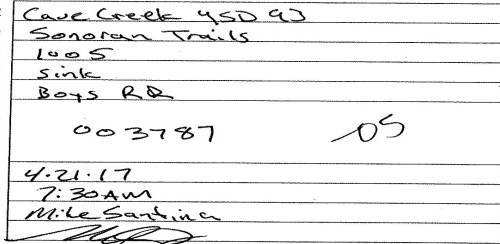 Cave Creek USD 93
Sonoran Trails
1005
Sink
Boys RR
003787 05
4.21.17
7:30 AM
Mike Santina